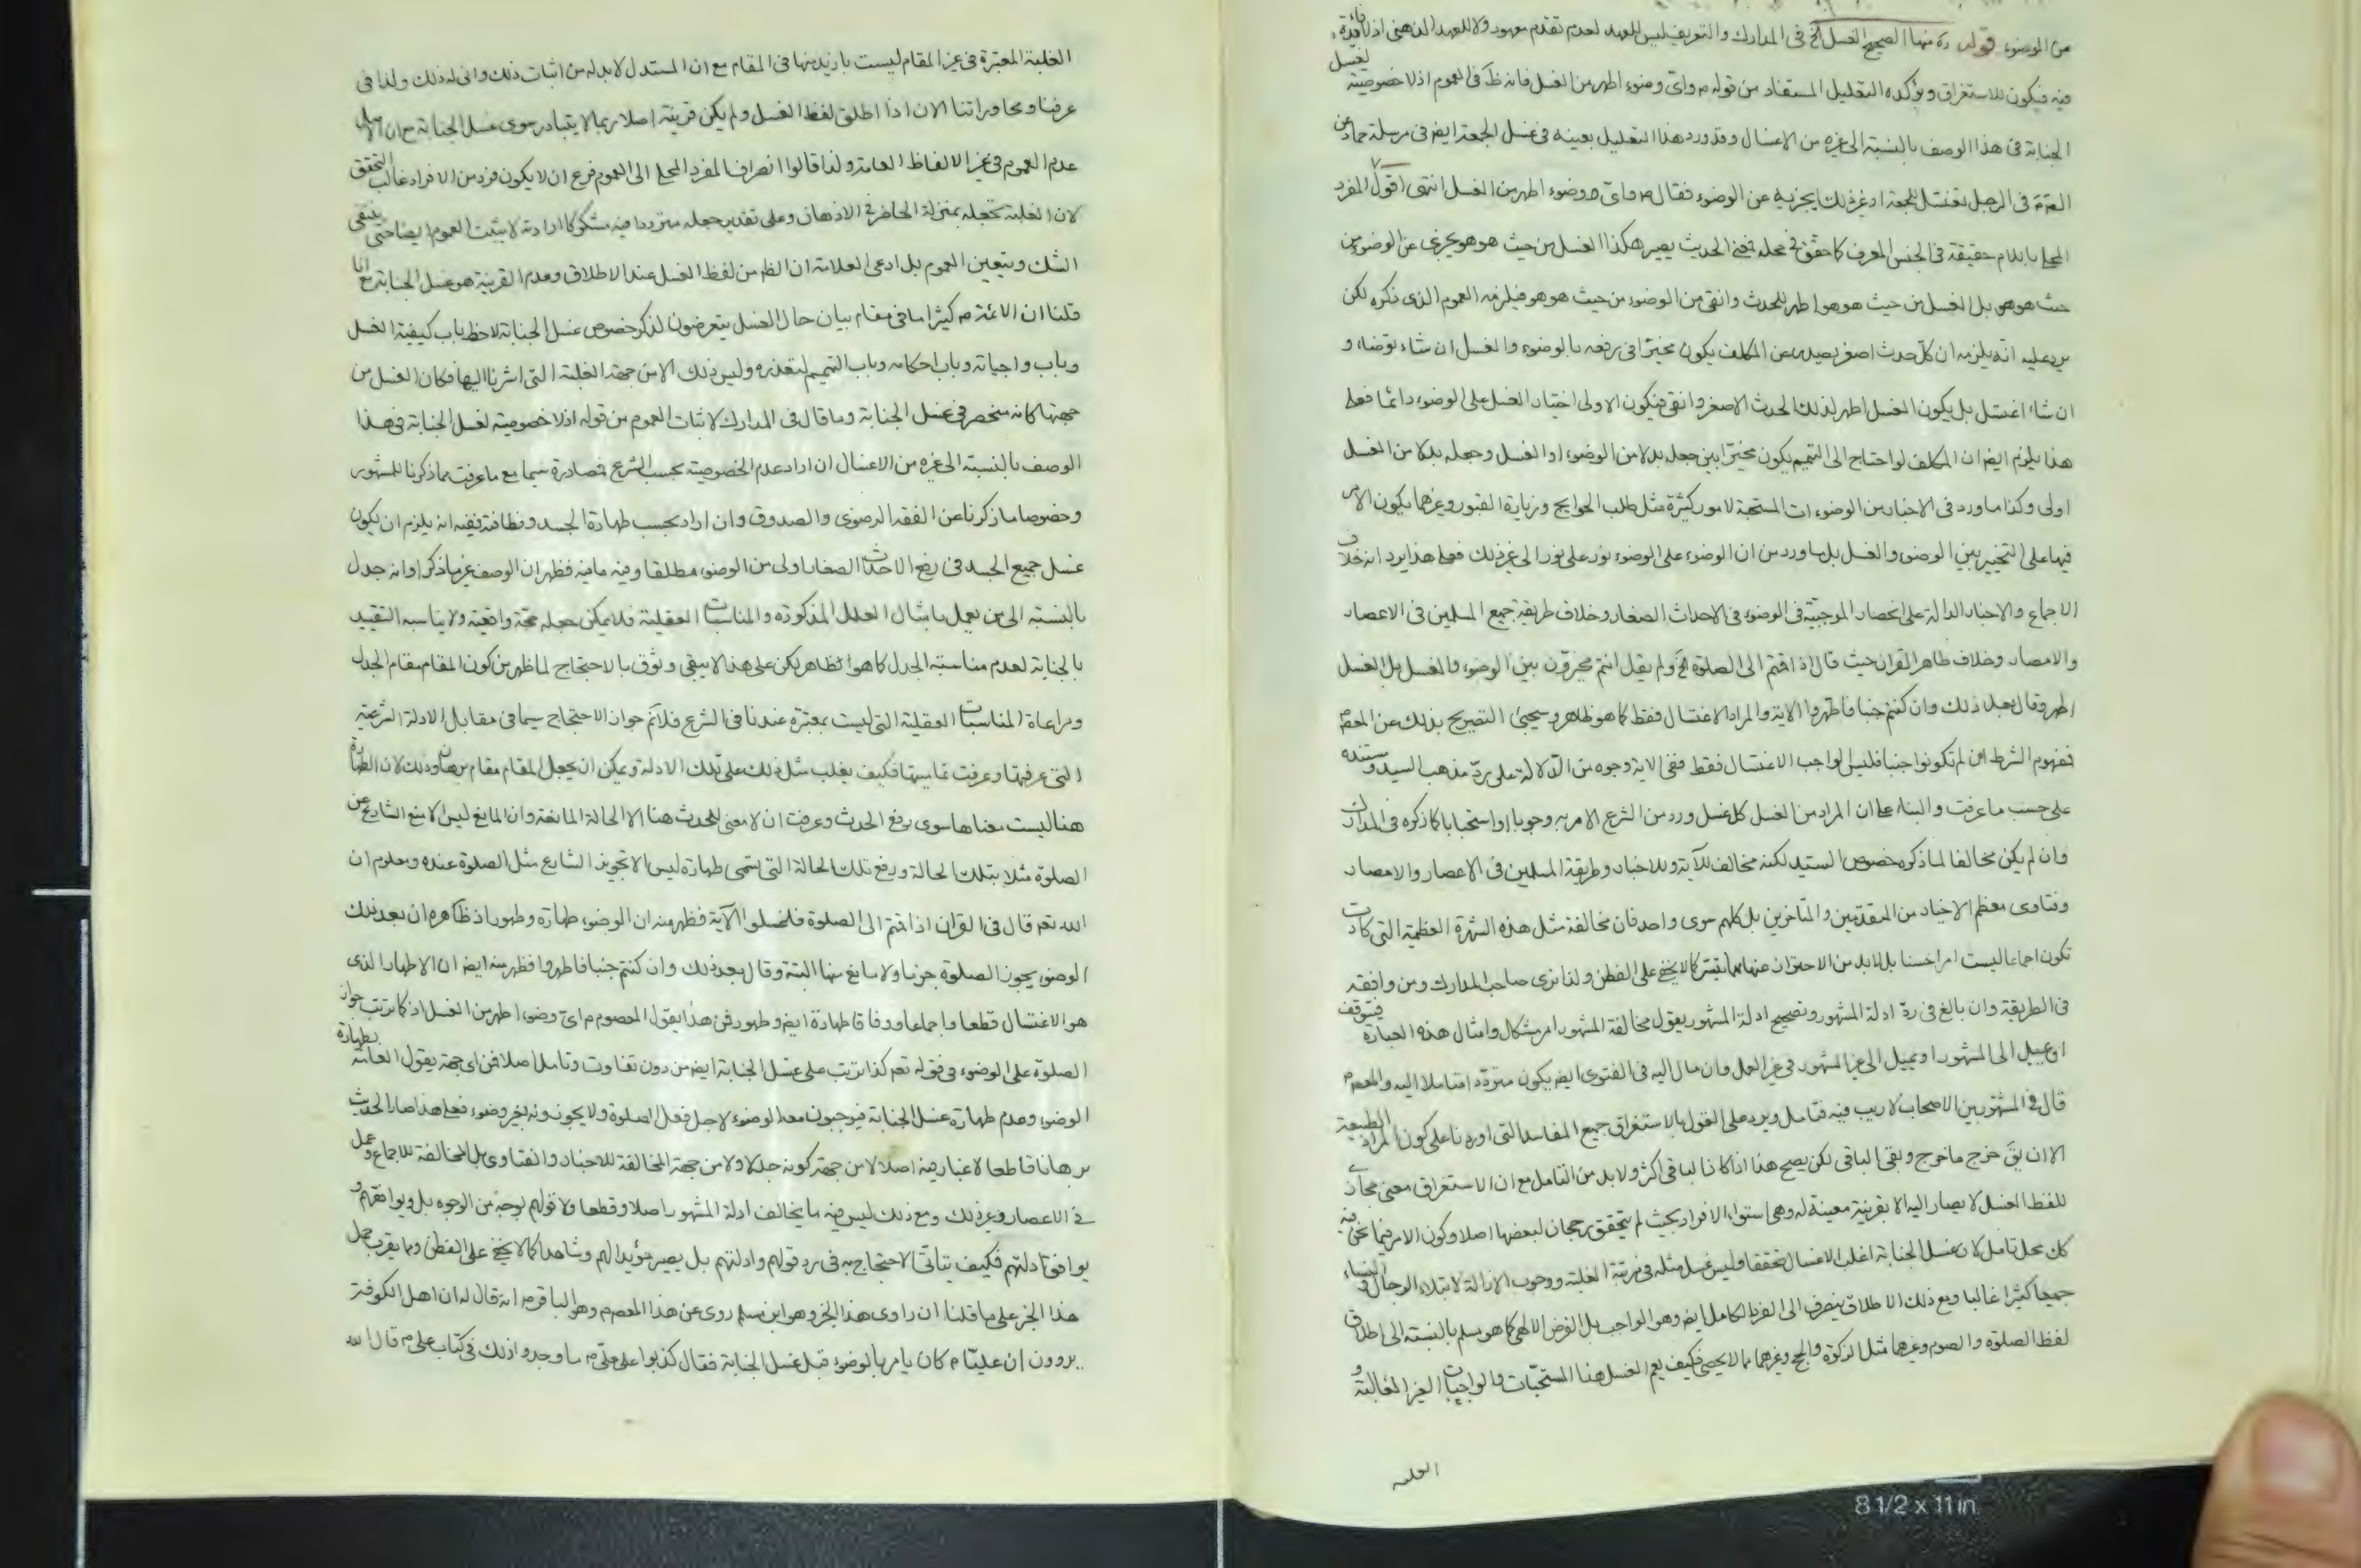 من الوضوء قوله ره منها الصحيح الغسل الخ في المدارك والتعريف ليس للعهد لعدم تقدم معهود ولا للعهد الذهني اذ لا فائدة
فيه فيكون للاستغراق ويؤكده التعليل المستفاد من قوله م واي وضوء اطهر من الغسل فانه ظ في العموم اذ لا خصوصية لغسل
الجنابة في هذا الوصف بالنسبة الى غيره من الاغسال وقد ورد هذا التعليل بعينه في غسل الجمعة ايض في مرسلة حماد عن
الص م في الرجل يغتسل للجمعة او غير ذلك ايجزيه عن الوضوء فقال م واي وضوء اطهر من الغسل انتهى اقول المفرد
المحلى باللام حقيقة في الجنس المعرف كما حقق في محله فمعنى الحديث يصير هكذا الغسل من حيث هو هو يجزى عن الوضوء من
حيث هو هو بل الغسل من حيث هو هو اطهر للحدث وانقى من الوضوء من حيث هو هو فيلزمه العموم الذي ذكره لكن
يرد عليه انه يلزمه ان كل حدث اصغر يصدر عن المكلف يكون مخيرا في رفعه بالوضوء والغسل ان شاء توضاء و
ان شاء اغتسل بل يكون الغسل اطهر لذلك الحدث الاصغر وانقى فيكون الاولى اختيار الغسل على الوضوء دائما فعلى
هذا يلزم ايض ان المكلف لو احتاج الى التيمم يكون مخيرا بين جعله بدلا من الوضوء او الغسل وجعله بدلا من الغسل
اولى وكذا ما ورد في الاخبار من الوضوءات المستحبة لامور كثيرة مثل طلب الحوايج وزيارة القبور وغيرهما يكون الامر
فيها على التخيير بين الوضوء والغسل بل ما ورد من ان الوضوء على الوضوء نور على نور الى غير ذلك فعلى هذا يرد انه خلاف
الاجماع والاخبار الدالة على انحصار الموجبية في الوضوء في الاحداث الصغار وخلاف طريقة جميع المسلمين في الاعصار
والامصار وخلاف ظاهر القران حيث قال اذا قمتم الى الصلوة الخ ولم يقل انتم مخيرون بين الوضوء والغسل بل الغسل
اطهر وقال بعد ذلك وان كنتم جنبا فاطهروا الاية والمراد الاغتسال فقط كما هو ظاهر وسيجئ التصريح بذلك عن المعصوم
فمفهوم الشرط ان لم تكونوا جنبا فليس الواجب الاغتسال فقط ففي الاية وجوه من الدلالة على رد مذهب السيد ومستنده
على حسب ما عرفت والبناء على ان المراد من الغسل كل غسل ورد من الشرع الامر به وجوبا او استحبابا كما ذكره في المدارك
وان لم يكن مخالفا لما ذكره خصوص السيد لكنه مخالف للآية وللاخبار وطريقة المسلمين في الاعصار والامصار
وفتاوى معظم الاخيار من المتقدمين والمتاخرين بل كلهم سوى واحد فان مخالفة مثل هذه الشهرة العظيمة التي كادت
تكون اجماعا ليست امرا حسنا بل لابد من الاحتراز عنها مهما تيسر كما لا يخفى على الفطن ولذا نرى صاحب المدارك ومن وافقه
في الطريقة وان بالغ في رد ادلة المشهور وتصحيح ادلة المشهور يقول مخالفة المشهور امر مشكل وامثال هذه العبارة فيتوقف
او يميل الى المشهور او يميل الى غير المشهور في غير العمل وان مال اليه في الفتوى ايض يكون مترددا متاملا اليه والمعصوم
قال خذ المشتهر بين الاصحاب لا ريب فيه فتامل ويرد على القول بالاستغراق جميع المفاسد التي اوردناها على كون المراد الطبيعة
الا ان يق خرج ما خرج وبقى الباقي لكن يصح هذا اذا كان الباقي اكثر ولابد من التامل مع ان الاستغراق معنى مجازي
للفظ الغسل لا يصار اليه الا بقرينة معينة له وهي استواء الافراد بحيث لم يتحقق رجحان لبعضها اصلا وكون الامر فيما نحن فيه
كك محل تامل لان غسل الجنابة اغلب الاغسال تحققا وليس غسل مثله في مرتبة الغلبة ووجوب الازالة لابتلاء الرجال والنساء
جميعا كثيرا غالبا ومع ذلك الاطلاق ينصرف الى الفرد الكامل ايض وهو الواجب بل الفرض الالهي كما هو مسلم بالنسبة الى اطلاق
لفظ الصلوة والصوم وغيرهما مثل الزكوة والحج وغيرهما مما لا يحصى فكيف يعم الغسل هنا المستحبات والواجبات الغير الغالبة و
الغلبة
الغلبة المعتبرة في غير المقام ليست بازيد منها في المقام مع ان المستدل لابد له من اثبات ذلك وانى له ذلك ولذا في
عرفنا ومحاوراتنا الان اذا اطلق لفظ الغسل ولم يكن قرينة اصلا ربما لا يتبادر سوى غسل الجنابة مع ان الاصل
عدم العموم في غير الالفاظ العامة ولذا قالوا انصراف المفرد المحلى الى العموم فرع ان لا يكون فرد من الافراد غالب التحقق
لان الغلبة تجعله بمنزلة الحاضر في الاذهان وعلى تقدير جعله مترددا فيه مشكوكا ارادته لا يثبت العموم ايضا حتى ينتفى
الشك ويتعين العموم بل ادعى العلامة ان الظ من لفظ الغسل عند الاطلاق وعدم القرينة هو غسل الجنابة مع انا
قلنا ان الائمة م كثيرا ما في مقام بيان حال الغسل يتعرضون لذكر خصوص غسل الجنابة لاحظ باب كيفية الغسل
وباب واجباته وباب احكامه وباب التيمم لتعذره وليس ذلك الا من جهة الغلبة التي اشرنا اليها فكان الغسل من
جهتها كانه منحصر في غسل الجنابة وما قال في المدارك لاثبات العموم من قوله اذ لا خصوصية لغسل الجنابة في هذا
الوصف بالنسبة الى غيره من الاغسال ان اراد عدم الخصوصية بحسب الشرع فمصادرة سيما مع ما عرفت مما ذكرنا للمشهور
وخصوصا ما ذكرنا عن الفقه الرضوي والصدوق وان اراد بحسب طهارة الجسد ونظافته ففيه انه يلزم ان يكون
غسل جميع الجسد في رفع الاحداث الصغار اولى من الوضوء مطلقا وفيه ما فيه فظهر ان الوصف غير ما ذكر او انه جدل
بالنسبة الى من يعمل بامثال العلل المذكورة والمناسبات العقلية فلا يمكن جعله حجة واقعية ولا يناسبه التقييد
بالجنابة لعدم مناسبته الجدل كما هو الظاهر لكن على هذا لا يبقى وثوق بالاحتجاج لما ظهر من كون المقام مقام الجدل
ومراعاة المناسبات العقلية التي ليست بمعتبرة عندنا في الشرع فلا نم جواز الاحتجاج سيما في مقابل الادلة الشرعية
التي عرفتها وعرفت تماميتها فكيف يغلب مثل ذلك على تلك الادلة ويمكن ان يجعل المقام مقام برهان وذلك لان الطهارة
هنا ليست معناها سوى رفع الحدث وعرفت ان لا معنى للحدث هنا الا الحالة المانعة وان المانع ليس الا منع الشارع عن
الصلوة مثلا بتلك الحالة ورفع تلك الحالة التي تسمى طهارة ليس الا تجويز الشارع مثل الصلوة عنده ومعلوم ان
الله تعم قال في القران اذا قمتم الى الصلوة فاغسلوا الآية فظهر منه ان الوضوء طهارة وطهور اذ ظاهره ان بعد ذلك
الوضوء يجوز الصلوة جزما ولا مانع منها البتة وقال بعد ذلك وان كنتم جنبا فاطهروا فظهر منه ايض ان الاطهار الذي
هو الاغتسال قطعا واجماعا ووفاقا طهارة ايض وطهور فمن هذا يقول المعصوم م اي وضوء اطهر من الغسل اذ كما ترتب جواز
الصلوة على الوضوء في قوله تعم كذا ترتب على غسل الجنابة ايض من دون تفاوت وتامل اصلا فمن اى جهة يقول العامة بطهارة
الوضوء وعدم طهارة غسل الجنابة فيوجبون معه الوضوء لاجل فعل الصلوة ولا يجوزونه بغير وضوء فعلى هذا صار الحديث
برهانا قاطعا لا غبار فيه اصلا لا من جهة كونه جدلا ولا من جهة المخالفة للاخبار والفتاوى بل المخالفة للاجماع وعمل
في الاعصار وغير ذلك ومع ذلك ليس فيه ما يخالف ادلة المشهور اصلا وقطعا ولا قولهم بوجه من الوجوه بل ويوافقهم و
يوافق ادلتهم فكيف يتاتى الاحتجاج به في رد قولهم وادلتهم بل يصير مؤيدا لهم وشاهدا كما لا يخفى على الفطن ومما يقرب حمل
هذا الخبر على ما قلنا ان راوى هذا الخبر وهو ابن مسلم روى عن هذا المعصوم م وهو الباقر م انه قال له ان اهل الكوفة
يروون ان عليا م كان يامر بالوضوء قبل غسل الجنابة فقال كذبوا على علي م ما وجدوا ذلك في كتاب على م قال الله
8 1/2 x 11 in.